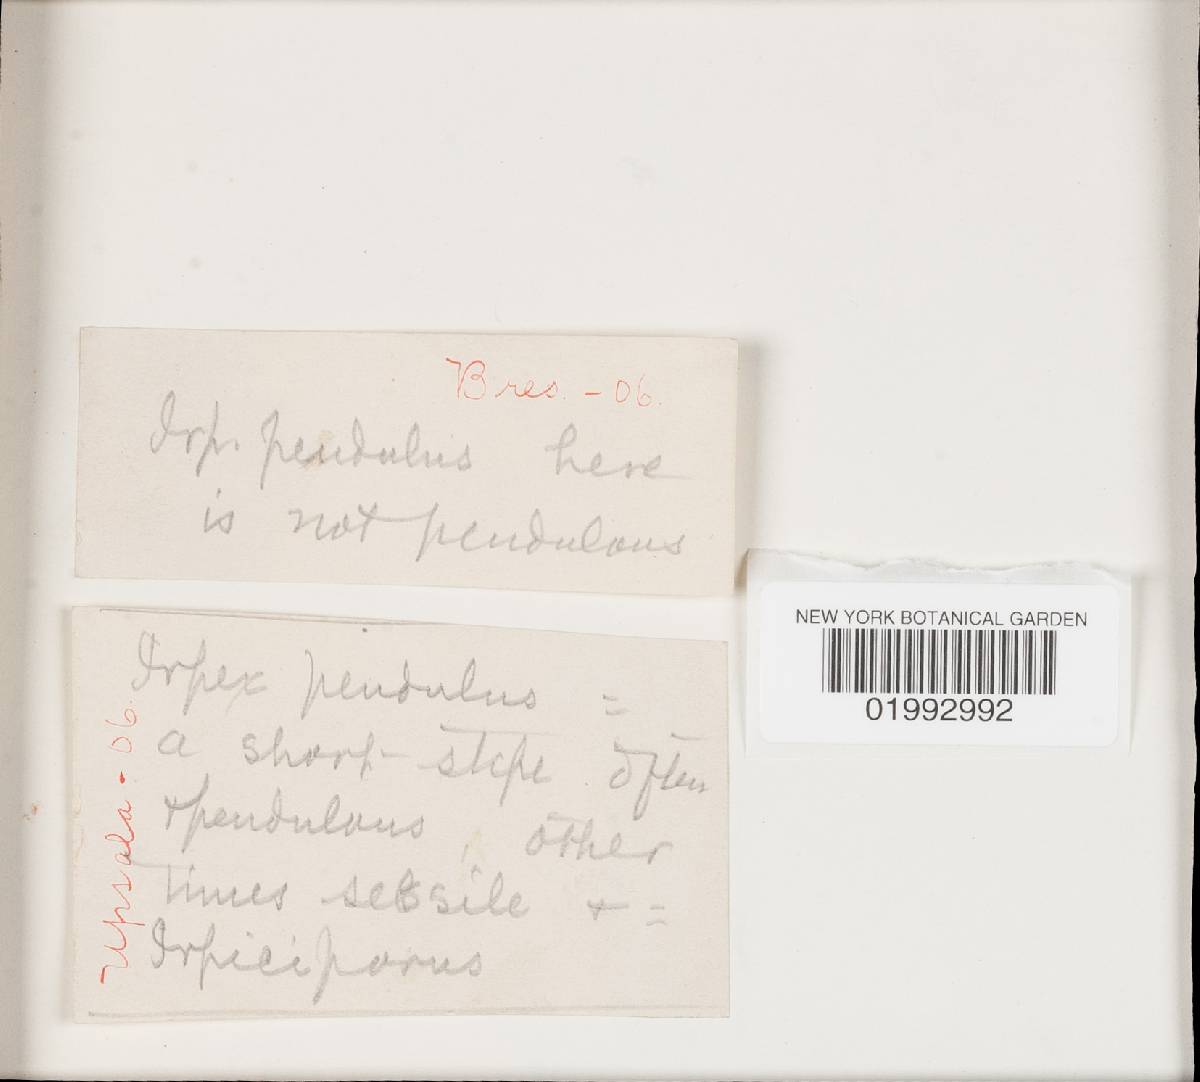 Bres. - 06.
Irp. pendulus here
is not pendulous
Irpex pendulus =
a short stipe often
& pendulous, other
times sessile & =
Irpiciporus
Upsala - 06.
NEW YORK BOTANICAL GARDEN
01992992